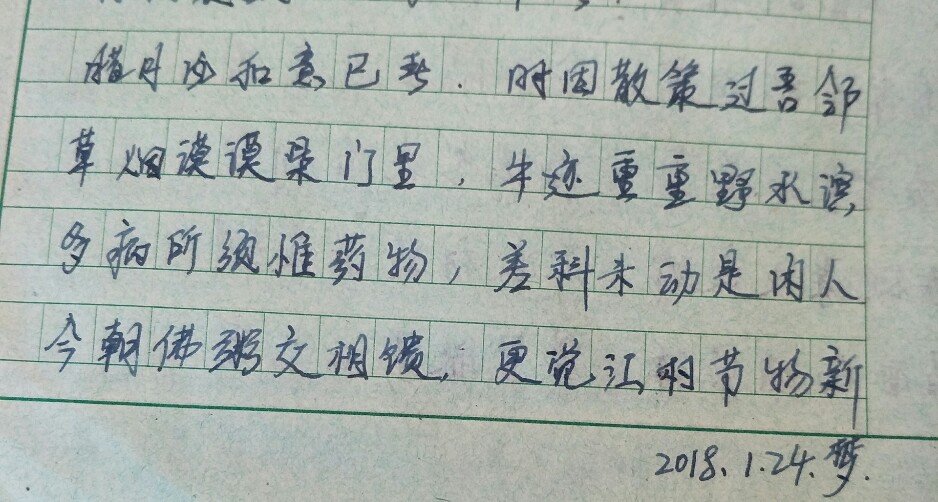 腊月风和意已春.时因散策过吾邻
草烟漠漠柴门里,牛迹重重野水滨
多病所须惟药物,差科未动是闲人
今朝佛粥交相馈,更觉江村节物新
2018.1.24.梦.